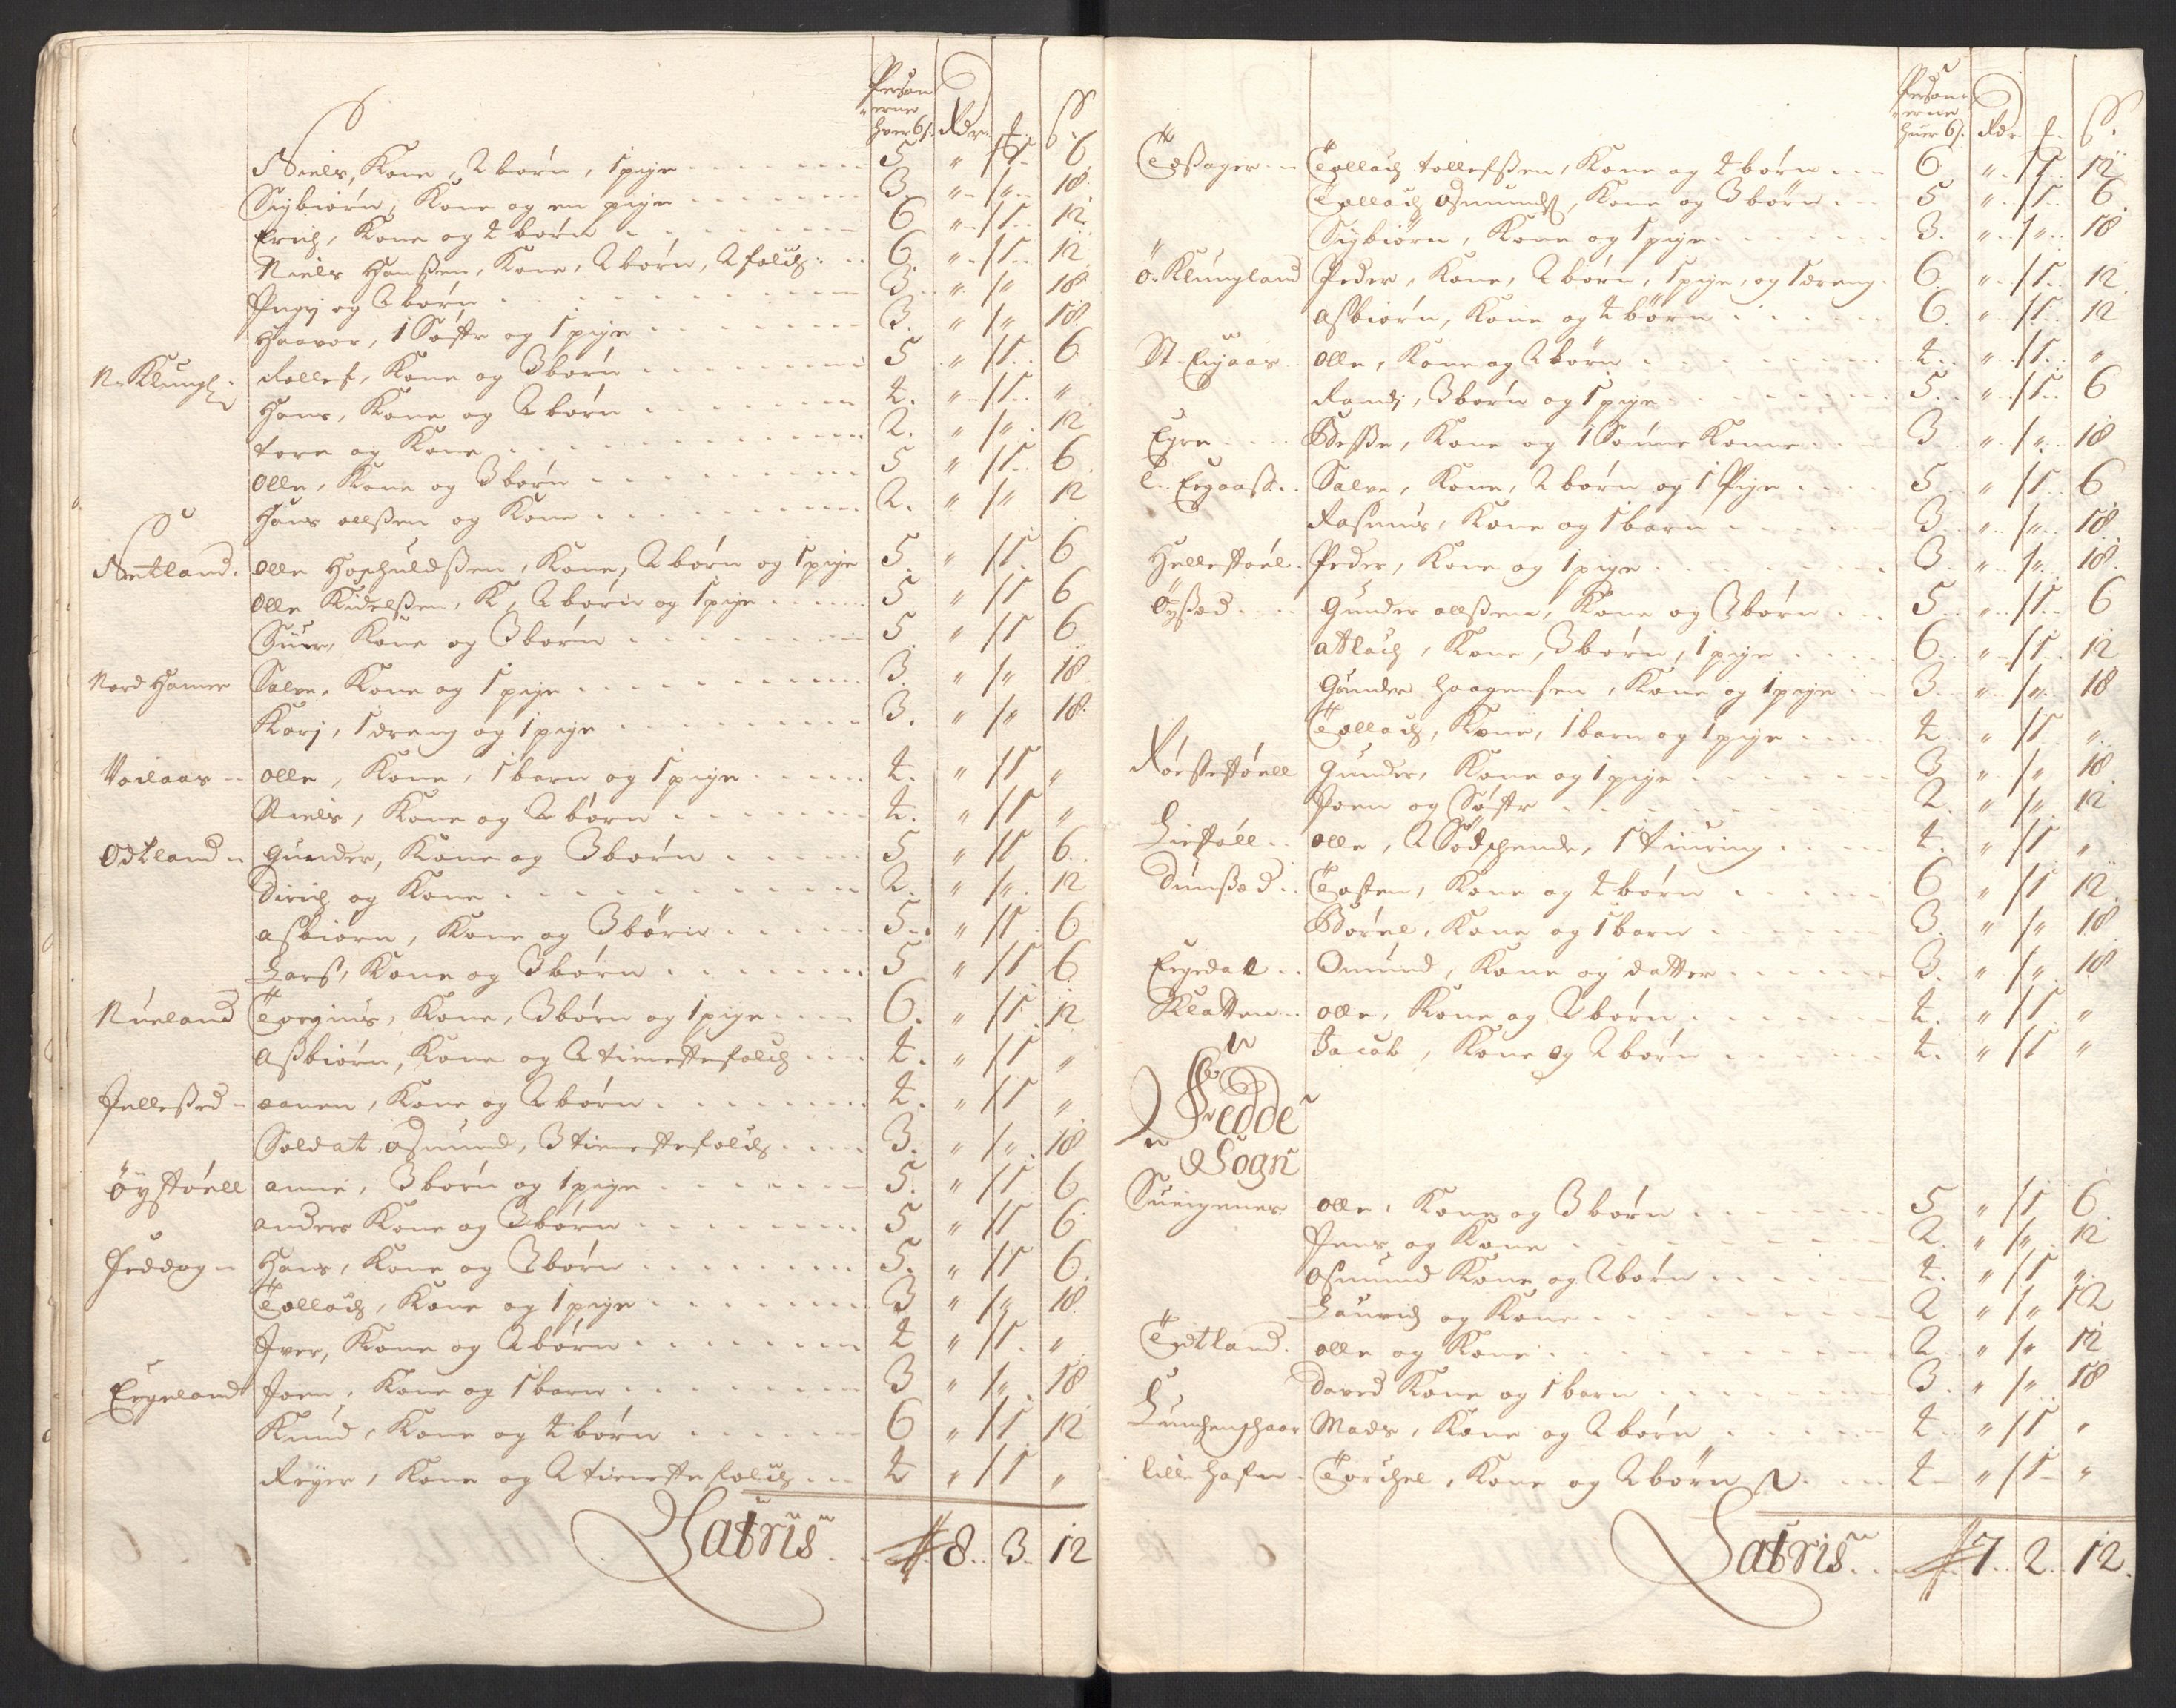 Person
erne
hver 6 s. Rdr. s
Niels, Kone, 2 børn, 1 pige 5 " 1 6
Sigbiørn, Kone og en pige 3 " " 18
Erich, Kone og 4 børn 6 " 1 12
Niels Hanßen, Kone, 2 børn, 2 folch 6 " 1 12
og 2 børn 3 " " 18
Haavor, 1 Søster og 1 pige 3 " " 18
N. Klungl. Rollef, Kone og 3 børn 5 " 1 6
Hans, Kone og 2 børn 4 " 1 "
Tore og Kone 2 " " 12
Olle, Kone og 3 børn 5 " 1 6
Hans ollßen og Kone 2 " " 12
Netland Olle Hoschuldßen, Kone, 2 børn og 1 pige 5 " 1 6
Olle Kidelßen, K, 2 børn og 1 pige 5 " 1 6
Siur, Kone og 3 børn 5 " 1 6
Nord Hamre Salve, Kone og 1 pige 3 " " 18
Karj, 1 dreng og 1 pige 3 " " 18
Vailaas Olle, Kone, 1 barn og 1 pige 4 " 1 "
Niels, Kone og 2 børn 4 " 1 "
Odtland Gunder, Kone og 3 børn 5 " 1 6
Dirich og Kone 2 " " 12
Asbiørn, Kone og 3 børn 5 " 1 6
Lars, Kone og 3 børn 5 " 1 6
Nueland Torgius, Kone, 3 børn og 1 pige 6 " 1 12
Aßbiørn, Kone og 2 tienestefolch 4 " 1 "
Jelleßed aanen, Kone og 2 børn 4 " 1 "
Soldat Osmund, 3 tienestefolch 3 " " 18
Øystøell anne, 3 børn og 1 pige 5 " 1 6
anders Kone og 3 børn 5 " 1 6
Hans, Kone og 3 børn 5 " 1 6
Tollach, Kone og 1 pige 3 " " 18
Iver, Kone og 2 børn 4 " 1 "
Eegeland Joen, Kone og 1 barn 3 " " 18
Knud, Kone og 4 børn 6 " 1 12
Reyer, Kone og 2 tienestefolch 4 " 1 "
Latris 8 3 12
Person
erne
huer 6 s. Rdr. s
Tollach tollefßen, Kone og 4 børn 6 " 1 12
Tollach Osmunds, Kone og 3 børn 5 " 1 6
Sigbiørn, Kone og 1 pige 3 " " 18
Ø. Klungland Peder, Kone, 2 børn, 1 pige, og 1 dreng 6 " 1 12
Asbiørn, Kone og 4 børn 6 " 1 12
St. Eigaas Olle, Kone og 2 børn 4 " 1 "
Randj, 3 børn og 1 pige 5 " 1 6
Egre Beße, Kone og 1 Sønne Konne 3 " " 18
L. Eegaaß Salve, Kone, 2 børn og 1 Pige 5 " 1 6
Rasmus, Kone og 1 barn 3 " " 18
Hellestøel Peder, Kone og 1 pige 3 " " 18
Øyßæd Gunder ollßen, Kone og 3 børn 5 " 1 6
Atlach, Kone, 3 børn, 1 pige 6 " 1 12
Gunder Haagensen, Kone og 1 pige 3 " " 18
Tollach, Kone, 1 barn og 1 pige 4 " 1 "
Gunder, Kone og 1 pige 3 " " 18
Joen og Søster 2 " " 12
Liestøll olle, 2 Sødschende, 1 4 " 1 "
Dunßæd Tosten, Kone og 4 børn 6 " 1 12
Børel, Kone og 1 barn 3 " " 18
Eegedal Omund, Kone og datter 3 " " 18
Klatten olle, Kone og 2 børn 4 " 1 "
Jacob, Kone og 2 børn 4 " 1 "
Fedde
Sogn
Sueigenes olle, Kone og 3 børn 5 " 1 6
Jens og Kone 2 " " 12
Osmund Kone og 2 børn 4 " 1 "
Lauvids og Kone 2 " " 12
Tedtland olle og Kone 2 " " 12
Daved Kone og 1 barn 3 " " 18
Mads, Kone og 2 børn 4 " 1 "
lille Hafen Torchel, Kone og 2 børn 4 " 1 "
Latris 7 2 12